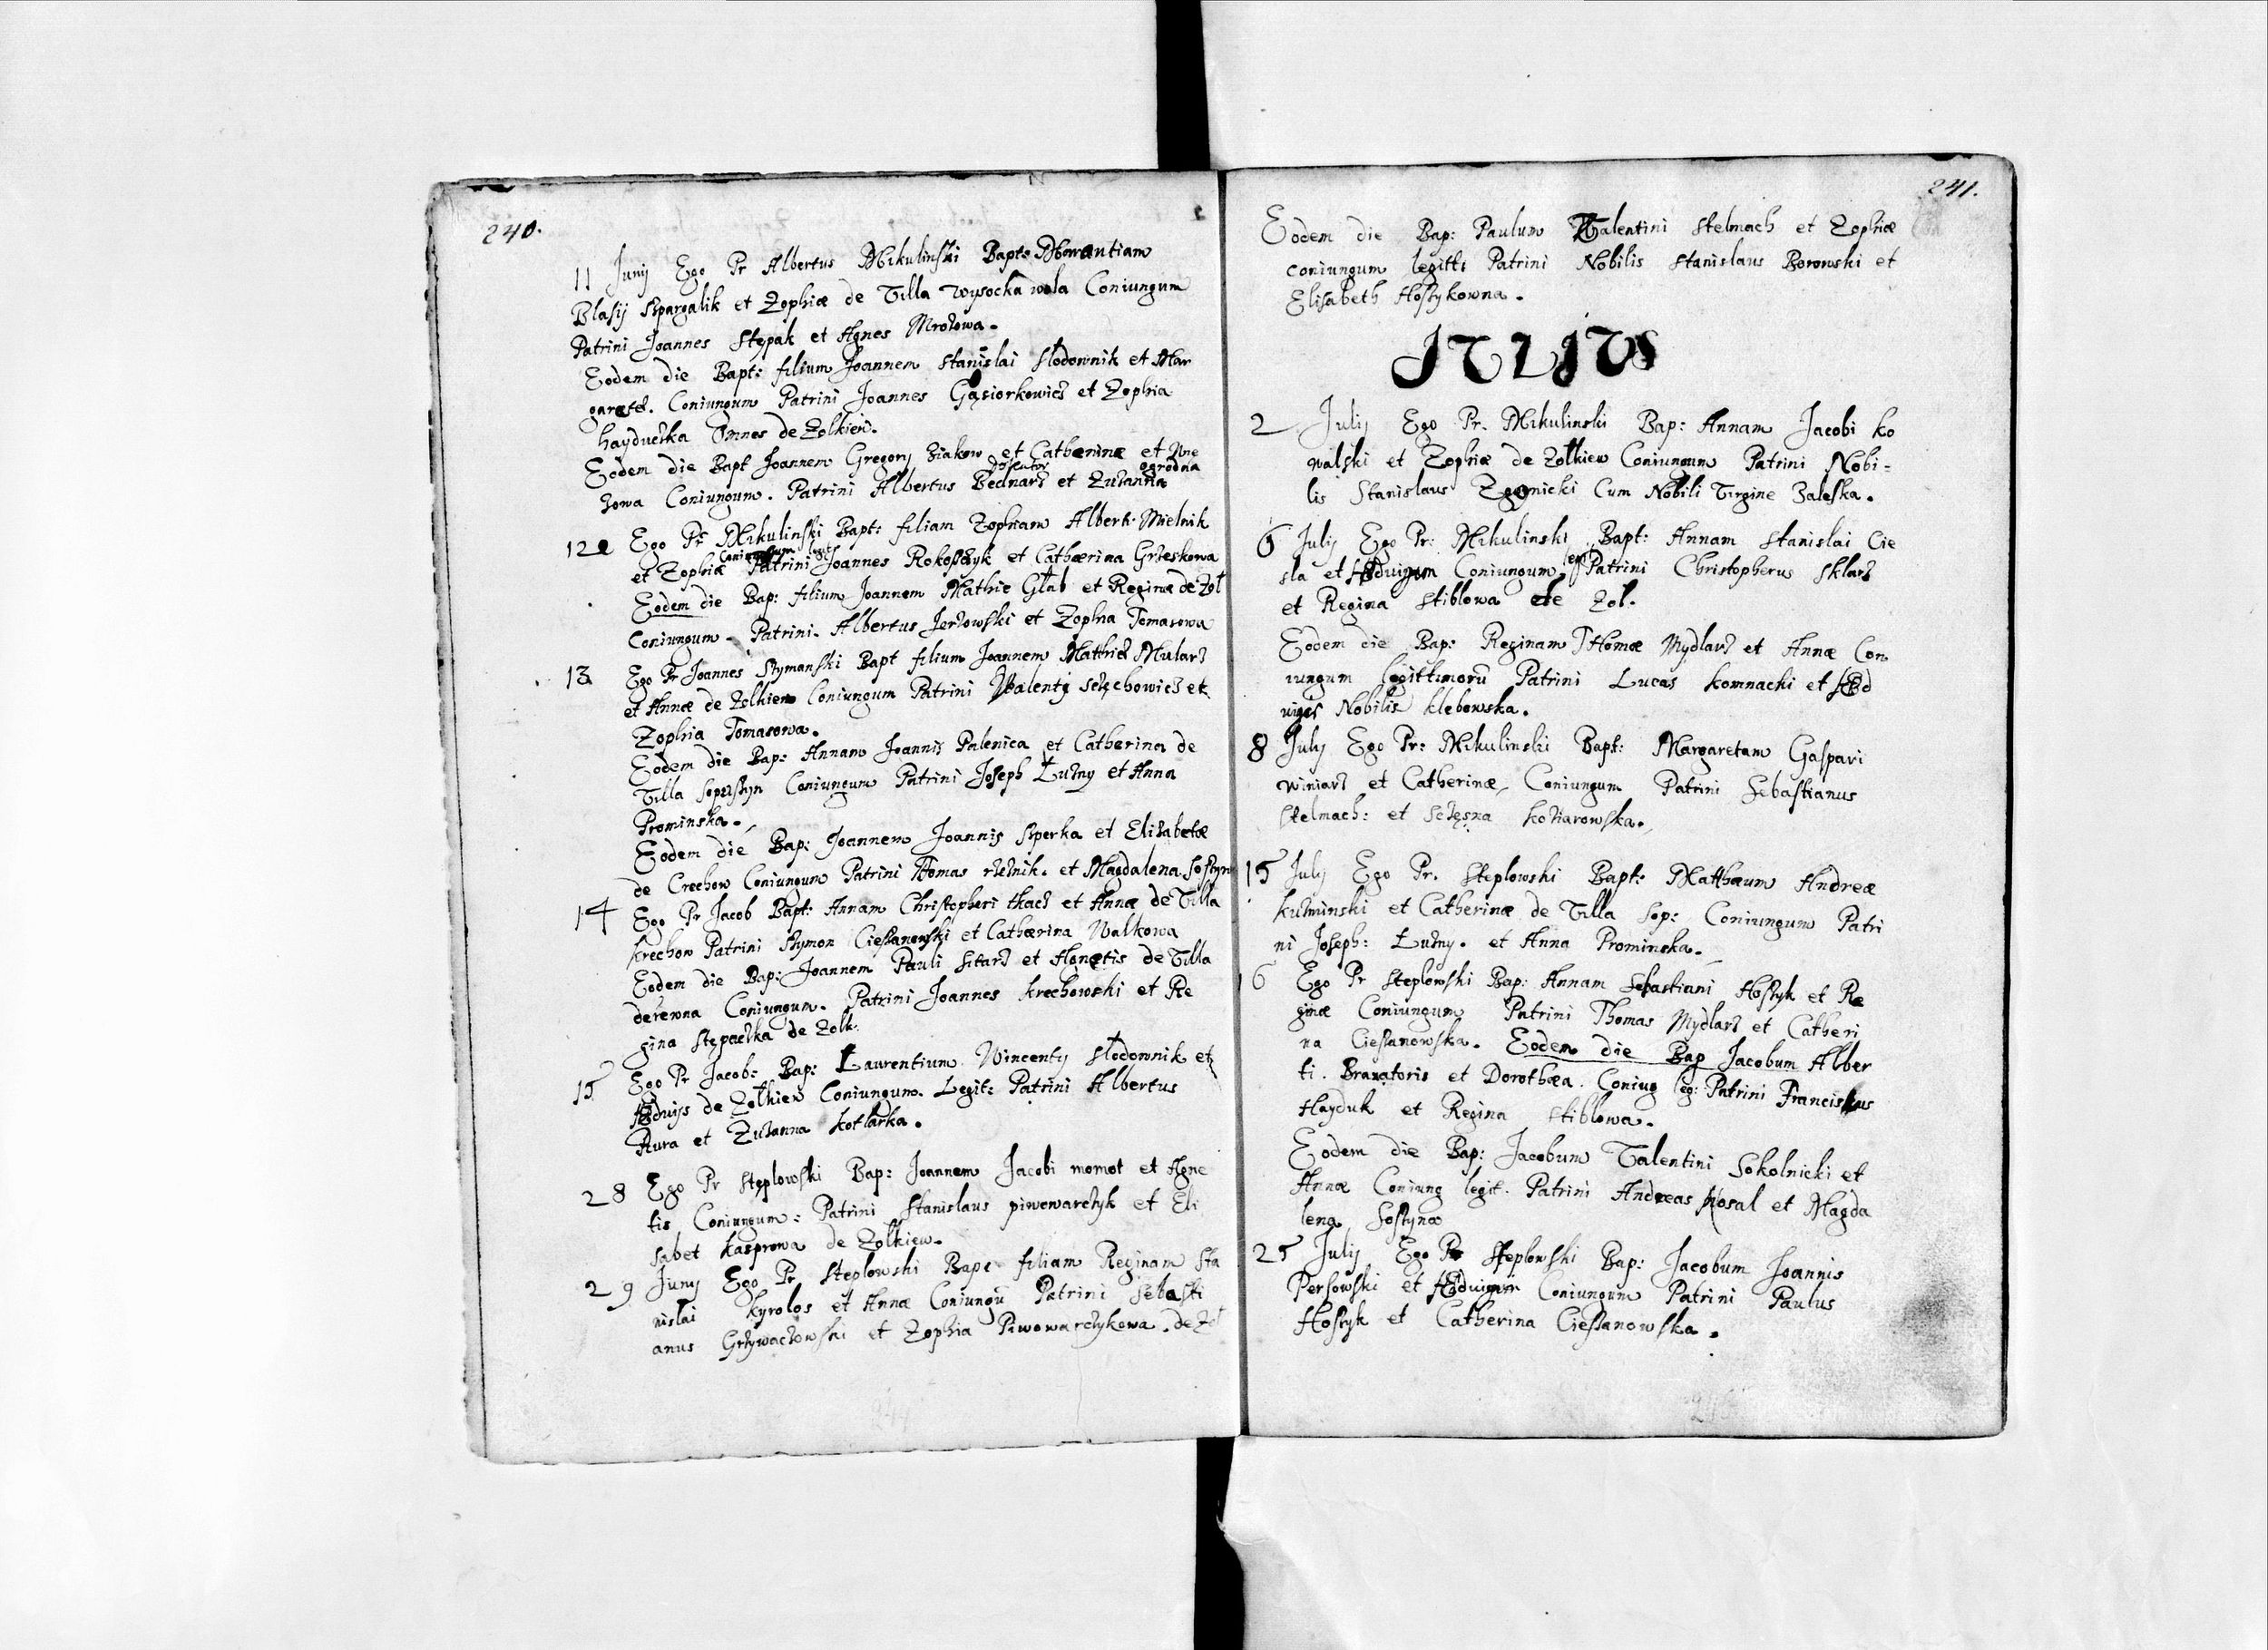 240.
11 Junij Ego Pr Albertus Mikulinski Bapt:
Blasij Szpargalik et Zophiæ de Villa wysocka wola Coniungum
Patrini Joannes Stępak et Agnes Mrozowa.
Eodem die Bapt: filium Joannem Stanislai Słodownik et Mar
garetæ. Coniungum Patrini Joannes Gąsiorkowicz et Zophia
hayduczka Omnes de Zolkiew.
Eodem die Bapt Joannem Gregorij Ziakow et Catherinæ et
Coniungum. Patrini Albertus Bednarz et Zuzanna ogrodna
12 Ego Pr Mikulinski Bapt: filiam Zophiam Alberti Mielnik
et Zophiæ Coniungum legit Patrini Joannes Rokoszczyk et Cathærina Grzeskowa
Eodem die Bap: filium Joannem Mathie Głab et Reginæ de Zoł
Coniungum. Patrini. Albertus Jerzowski et Zophia Tomasowa
13 Ego Pr Joannes Szymanski Bapt filium Joannem Matthiæ Mularz
et Annæ de Zolkiew Coniungum Patrini Walenty et
Zophia Tomasowa.
Eodem die Bap: Annam Joannis Palenica et Catherina de
Villa Soposzyn Coniungum Patrini Joseph Łuzny et Anna
Prominska.
Eodem die Bap: Joannem Joannis Szperka et Elizabetæ
de Crechow Coniungum Patrini Thomas rzeznik. et Magdalena Soszyna
14 Ego Pr Jacob Bapt: Annam Christopheri tkacz et Annæ de Villa
krechow Patrini Szymon Cieszanowski et Cathærina Walkowa
Eodem die Bap: Joannem Pauli Sitarz et Agnetis de Villa
derewna Coniungum. Patrini Joannes krechowski et Re
gina Stępaczka de Zolk:
15 Ego Pr Jacob: Bap: Laurentium Wincenty Słodownik et
Hedvigs de Zolkiew Coniungum. Legit: Patrini Albertus
Rura et Zuzanna kotlarka.
28 Ego Pr Stęplowski Bap: Joannem Jacobi momot et Agne
tis Coniungum: Patrini Stanislaus piwowarczyk et Eli
sabet kasprowa de Zolkiew.
29 Junij Ego Pr Steplowski Bapt filiam Reginam Sta
nislai kyrolos et Annæ Coniungū Patrini Sebasti
anus Grzywaczowski et Zophia Piwowarczykowa. de Zoł
241.
Eodem die Bap: Paulum Valentini Stelmach et Zophiæ
coniungum legitt: Patrini Nobilis Stanislaus Borowski et
Elisabeth Hoszykowna.
JULJUS
2 Julij Ego Pr. Mikulinski Bap: Annam Jacobi ko
walski et Zophiæ de Zołkiew Coniungum Patrini Nobi=
lis Stanislaus Zgonicki Cum Nobili Virgine Zaleska.
6 Julij Ego Pr: Mikulinski Bapt: Annam Stanislai Cie
sla et Hedvigem Coniungum leg Patrini Christopherus Sklarz
et Regina Stiblowa de Zol.
Eodem die Bap: Reginam THomæ Mydlarz et Annæ Con
iungum legittimorū Patrini Lucas komnacki et Hed
uiges Nobilis klebowska.
8 July Ego Pr: Mikulinski Bapt: Margaretam Gaspari
winiarz et Catherinæ, Coniungum Patrini Sebastianus
Stelmach: et Sczęsna koziarowska.
15 July Ego Pr. Steplowski Bapt: Matthæum Andreæ
kuzminski et Catherinæ de Villa Sop: Coniungum Patri
ni Joseph: Łuzny. et Anna Prominska.
16 Ego Pr Steplowski Bap: Annam Sebastiani Hoszyk et Re
ginæ Coniungum Patrini Thomas Mydlarz et Catheri
na Cieszanowska. Eodem die Bap Jacobum Alber
ti. Braxatoris et Dorothæa. Coniug leg: Patrini Franciskus
Hayduk et Regina Stiblowa.
Eodem die Bap: Jacobum Valentini Sokolnicki et
Annæ Coniung legit. Patrini Andreas Nosal et Magda
lena Soszyna
25 Julij Ego Pr Steplowski Bap: Jacobum Joannis
Persowski et Hedvigem Coniungum Patrini Paulus
Hoszyk et Catherina Cieszanowska.